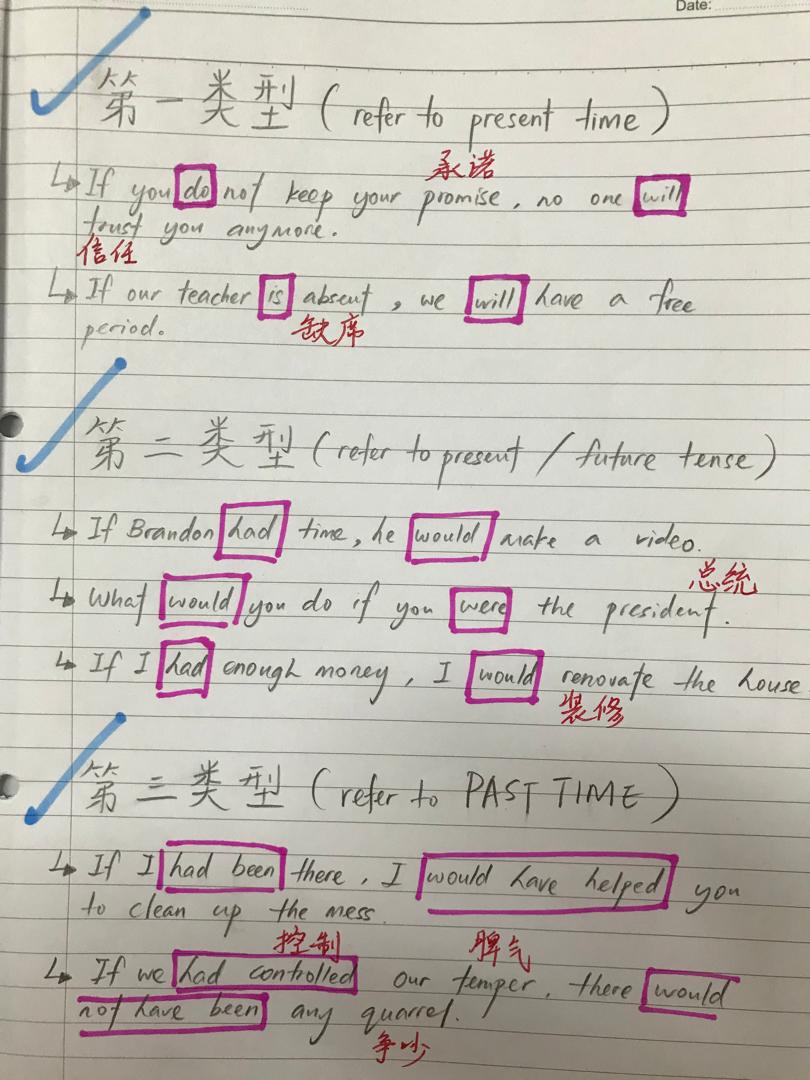 Date:
第一类型 (refer to present time)
承诺
↳ If you do not keep your promise, no one will
trust you anymore.
信任
↳ If our teacher is absent, we will have a free
period.
缺席
第二类型 (refer to present / future tense)
↳ If Brandon had time, he would make a video.
总统
↳ What would you do if you were the president.
↳ If I had enough money, I would renovate the house
装修
第三类型 (refer to PAST TIME)
↳ If I had been there, I would have helped you
to clean up the mess.
控制 脾气
↳ If we had controlled our temper, there would
not have been any quarrel.
争吵